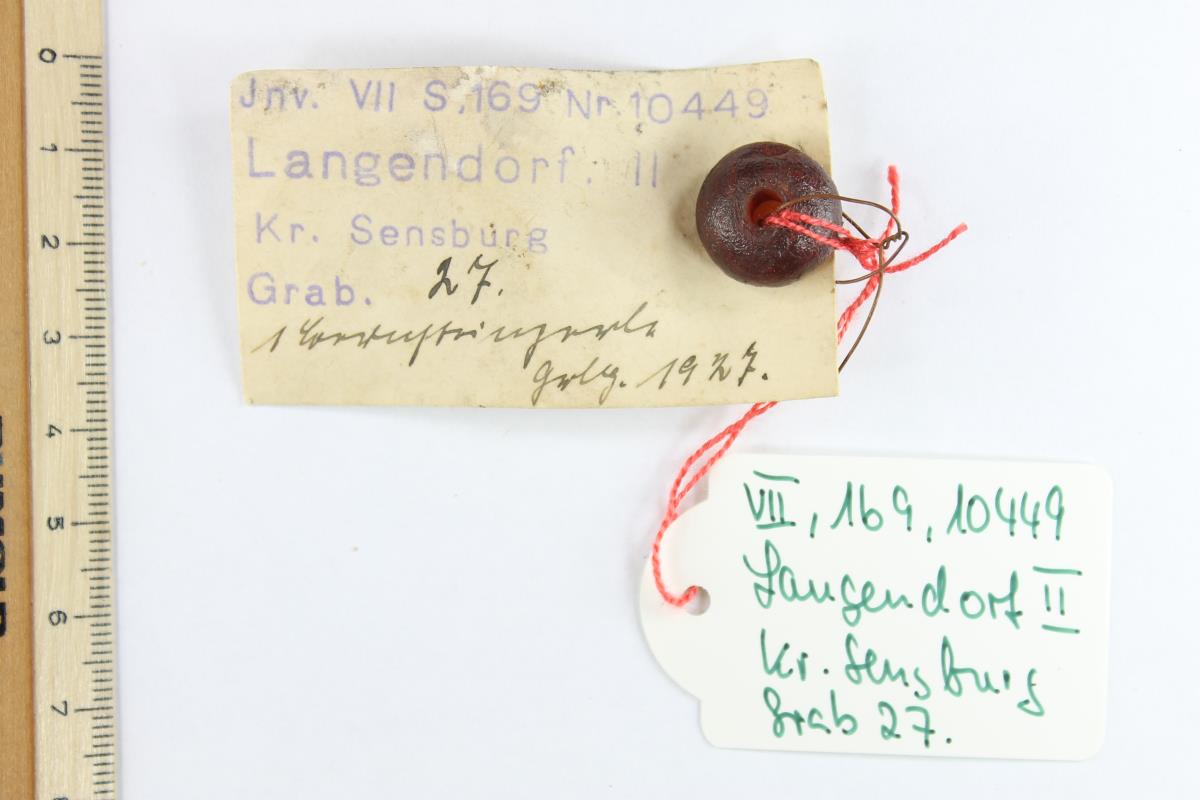 Jnv. VII S, 169 Nr. 10449
Langendorf: II
Kr. Sensburg
Grab. 27.
1 Bernsteinperle
1927.
VII, 169, 10449
Langendorf II
Kr. Sensburg
Grab 27.
0
1
2
3
4
5
6
7